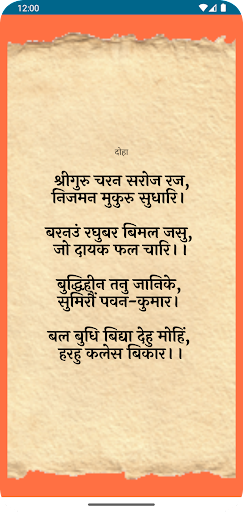 12:00
दोहा
श्रीगुरु चरन सरोज रज,
निजमन मुकुरु सुधारि।
बरनउं रघुबर बिमल जसु,
जो दायक फल चारि।
बुद्धिहीन तनु जानिके,
सुमिरौं पवन-कुमार।
बल बुधि बिद्या देहु मोहिं,
हरहु कलेस बिकार।।